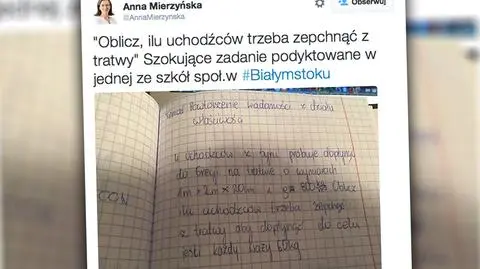 Anna Mierzyńska
@AnnaMierzynska
Obserwuj
"Oblicz, ilu uchodźców trzeba zepchnąć z
tratwy" Szokujące zadanie podyktowane w
jednej ze szkół społ.w #Białymstoku
Temat: Powtórzenie wiadomości z działu
właściwości
4 uchodźców z Syrii próbuje dopłynąć
do Grecji na tratwie o wymiarach
1m × 2m × 20cm i
Oblicz
ilu uchodźców trzeba zepchnąć
z tratwy aby dopłynąć do celu
jeśli każdy waży 60kg